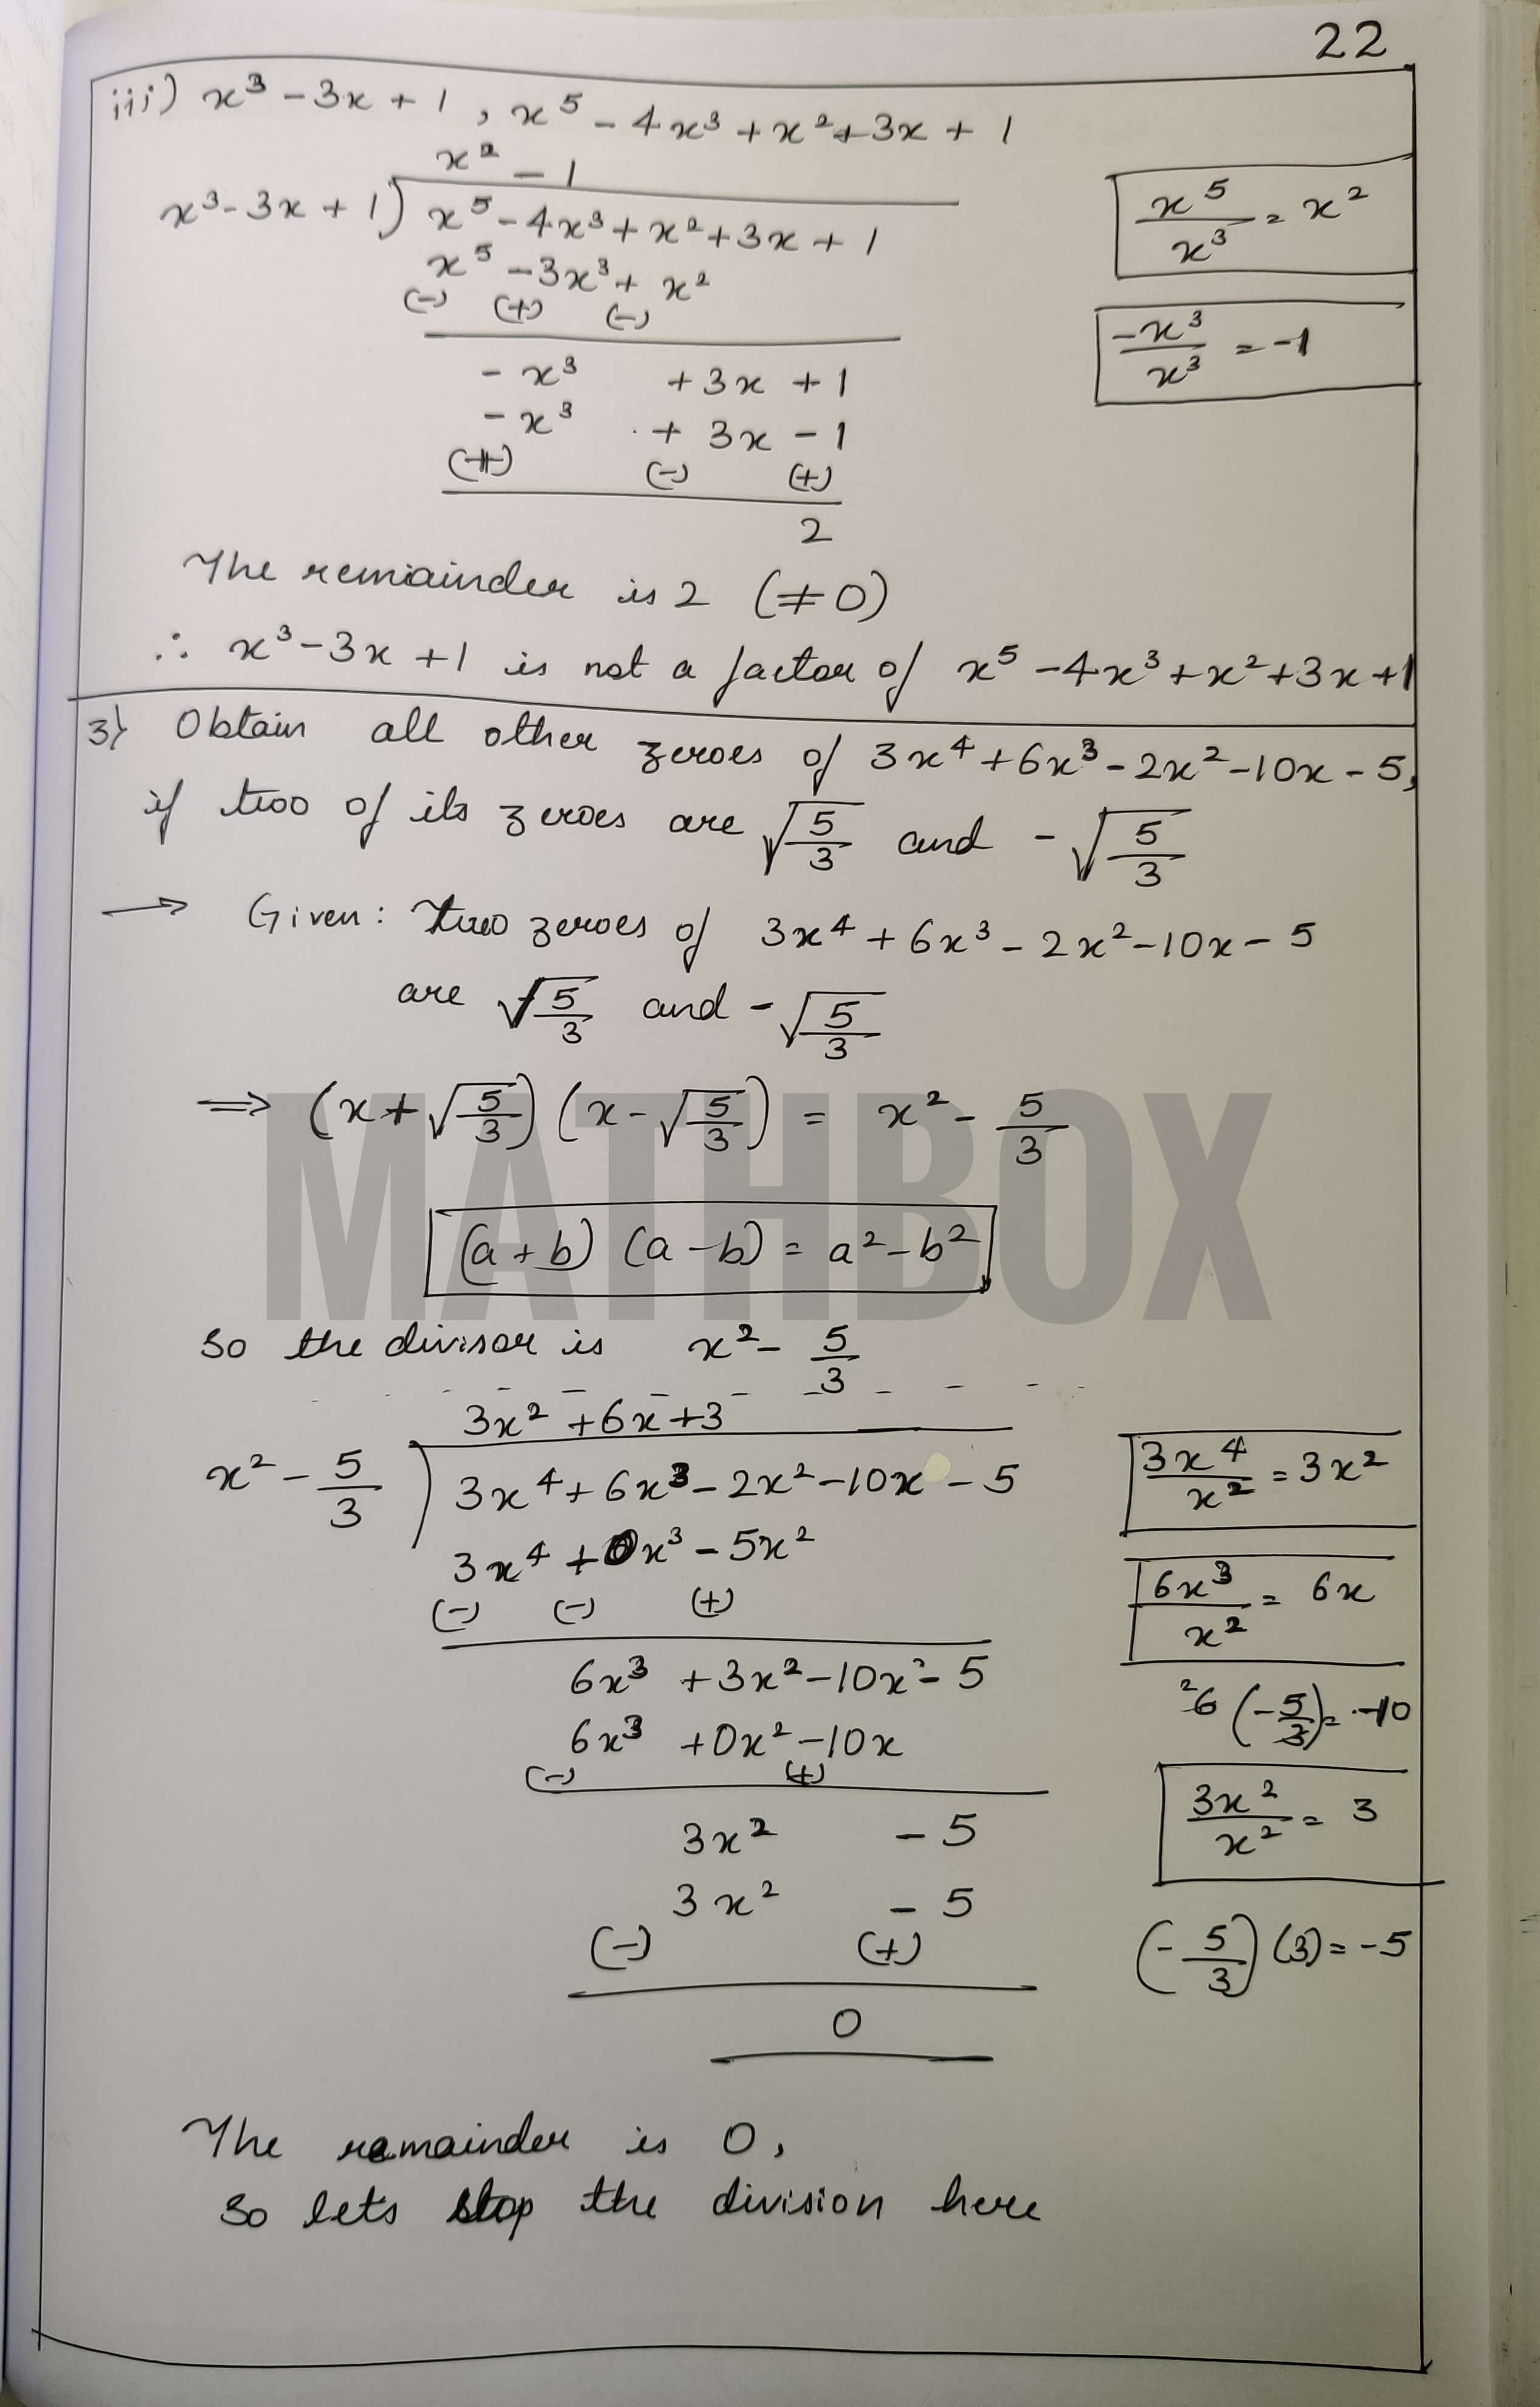 22
iii) x³ - 3x + 1 , x⁵ - 4x³ + x² + 3x + 1
x² - 1
x³ - 3x + 1 ) x⁵ - 4x³ + x² + 3x + 1
x⁵/x³ = x²
x⁵ - 3x³ + x²
(-) (+) (-)
-x³/x³ = -1
- x³ + 3x + 1
- x³ + 3x - 1
(+) (-) (+)
2
The remainder is 2 (≠0)
∴ x³ - 3x + 1 is not a factor of x⁵ - 4x³ + x² + 3x + 1
3) Obtain all other zeroes of 3x⁴ + 6x³ - 2x² - 10x - 5,
if two of its zeroes are √(5/3) and -√(5/3)
→ Given: Two zeroes of 3x⁴ + 6x³ - 2x² - 10x - 5
are √(5/3) and -√(5/3)
⇒ (x + √(5/3)) (x - √(5/3)) = x² - 5/3
MATHBOX
(a + b) (a - b) = a² - b²
So the divisor is x² - 5/3
3x² + 6x + 3
x² - 5/3 ) 3x⁴ + 6x³ - 2x² - 10x - 5
3x⁴/x² = 3x²
3x⁴ + 0x³ - 5x²
(-) (-) (+)
6x³/x² = 6x
6x³ + 3x² - 10x - 5
6x³ + 0x² - 10x
(-) (+)
²6 (-5/3) = -10
3x² - 5
3x²/x² = 3
3x² - 5
(-) (+)
(-5/3) (3) = -5
0
The remainder is 0,
So lets stop the division here